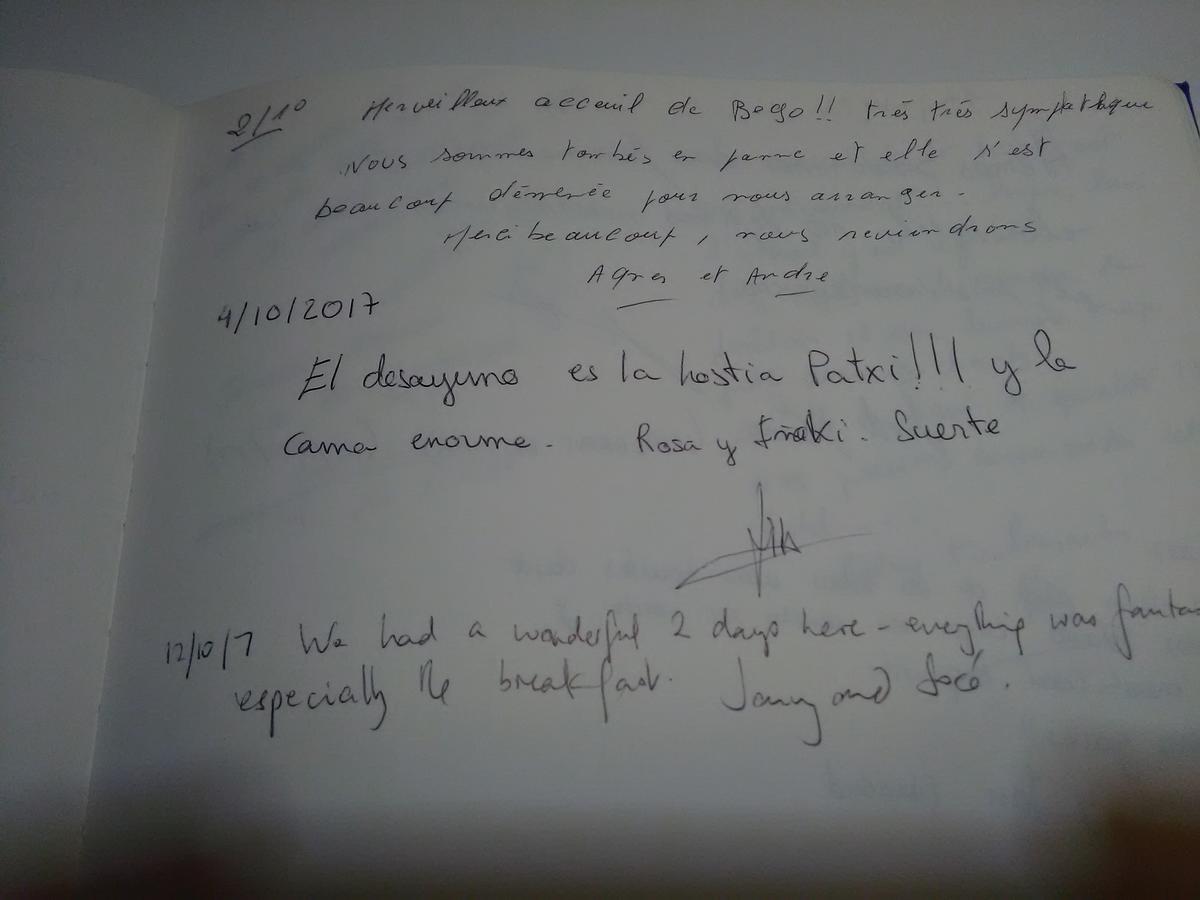 2/10 Merveilleux acceuil de Bego!! très très sympathque
Nous sommes tombés en panne et elle s'est
beaucoup démenée pour nous arranger.
Merci beaucoup, nous reviendrons
Agnes et Andre
4/10/2017
El desayuno es la hostia Patxi!!! y la
cama enorme. Rosa y Iñaki. Suerte
12/10/7 We had a wonderful 2 days here - everything was fantas
especially the breakfast. and José.